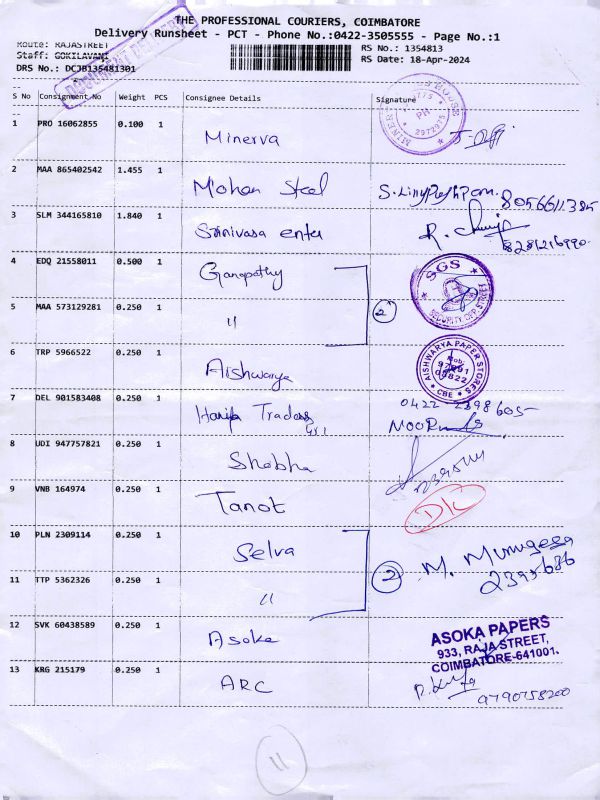 THE PROFESSIONAL COURIERS, COIMBATORE
Delivery Runsheet - PCT - Phone No.:0422-3505555 - Page No.:1
Route: RAJASTREET
RS No.: 1354813
Staff: GOKILAVANI
RS Date: 18-Apr-2024
DRS No.: DCJB135481301
S No Consignment No Weight PCS Consignee Details Signature
1 PRO 16062855 0.100 1 Minerva
2972975
2 MAA 865402542 1.455 1 Mohan Steel 8056611385
3 SLM 344165810 1.840 1 Srinivasa enter R. 8281216990
4 EDQ 21558011 0.500 1 Ganapathy
SGS
SECURITY OPP. STREET
5 MAA 573129281 0.250 1 " 2
6 TRP 5966522 0.250 1 Aishwarya
AISHWARYA PAPER STORES
CBE
7 DEL 901583408 0.250 1 Hanifa Traders 0422 2398605
8 UDI 947757821 0.250 1 Shobha
9 VNB 164974 0.250 1 Tanot D/C
10 PLN 2309114 0.250 1 Selva M. Murugesa
2395686
11 TTP 5362326 0.250 1 " 2
12 SVK 60438589 0.250 1 Asoka
ASOKA PAPERS
933, RAJA STREET,
COIMBATORE-641001.
13 KRG 215179 0.250 1 ARC 9790758200
11